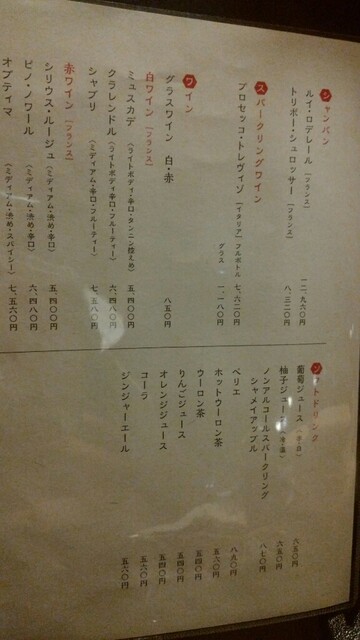 シャンパン
ルイ・ロデレール［フランス］ 一二、九六〇円
トリボー・シュロッサー［フランス］ 八、三二〇円
スパークリングワイン
プロセッコ・トレヴィゾ［イタリア］フルボトル 七、六二〇円
グラス 一、一八〇円
ワイン
グラスワイン 白・赤 八五〇円
白ワイン［フランス］
ミュスカデ（ライトボディ・辛口・タンニン控えめ） 五、四〇〇円
クラレンドル（ライトボディ・辛口・フルーティー） 六、四八〇円
シャブリ（ミディアム・辛口・フルーティー） 七、五八〇円
赤ワイン［フランス］
シリウス・ルージュ（ミディアム・渋め・辛口） 五、四〇〇円
ピノ・ノワール（ミディアム・渋め・辛口） 六、四八〇円
オプティマ（ミディアム・渋め・スパイシー） 七、五六〇円
ソフトドリンク
葡萄ジュース（赤・白） 六五〇円
柚子ジュース（冷・温） 六五〇円
ノンアルコールスパークリング
シャメイアップル 八七〇円
ペリエ 八九〇円
ホットウーロン茶 五六〇円
ウーロン茶 五四〇円
りんごジュース 五四〇円
オレンジジュース 五四〇円
コーラ 五六〇円
ジンジャーエール 五六〇円